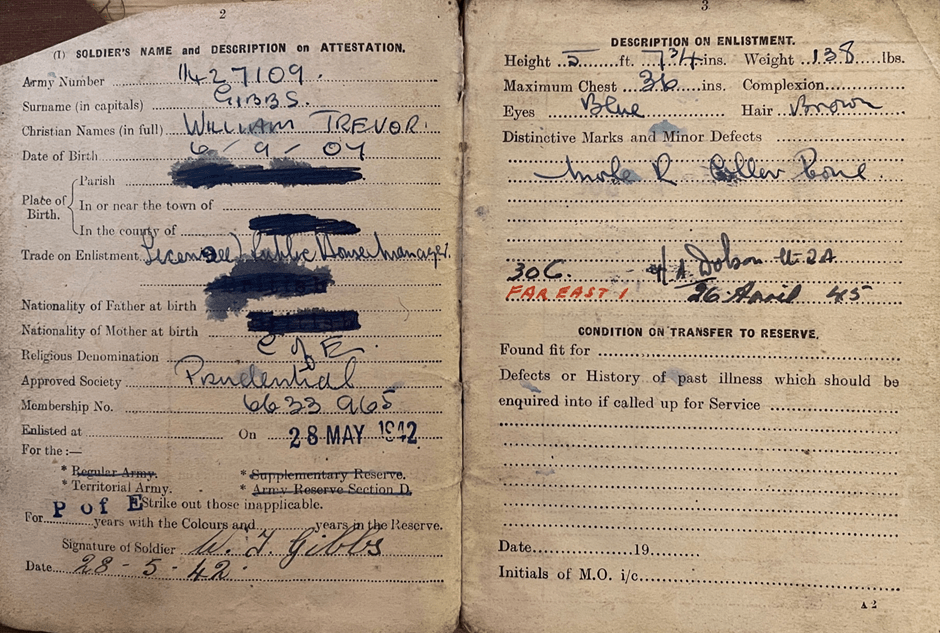 2
(I) SOLDIER'S NAME and DESCRIPTION on ATTESTATION.
Army Number 11427109.
Surname (in capitals) GIBBS.
Christian Names (in full) WILLIAM TREVOR.
Date of Birth 6-9-07
Place of Birth.
Parish
In or near the town of
In the county of
Trade on Enlistment Licensee) Public House Manager.
Nationality of Father at birth
Nationality of Mother at birth
Religious Denomination C of E
Approved Society Prudential
Membership No. 6633965
Enlisted at On 28 MAY 1942
For the :—
* Regular Army. * Supplementary Reserve.
* Territorial Army. * Army Reserve Section D.
P of E Strike out those inapplicable.
For years with the Colours and years in the Reserve.
Signature of Soldier W. T. Gibbs
Date 28-5-42.
3
DESCRIPTION ON ENLISTMENT.
Height 5 ft. 7 3/4 ins. Weight 138 lbs.
Maximum Chest 36 ins. Complexion
Eyes Blue Hair Brown
Distinctive Marks and Minor Defects
Mole R Coller Bone
30C. A. Dobson Lt. 2A
FAR EAST 1 26 April 45
CONDITION ON TRANSFER TO RESERVE.
Found fit for
Defects or History of past illness which should be
enquired into if called up for Service
Date 19
Initials of M.O. i/c
A 2